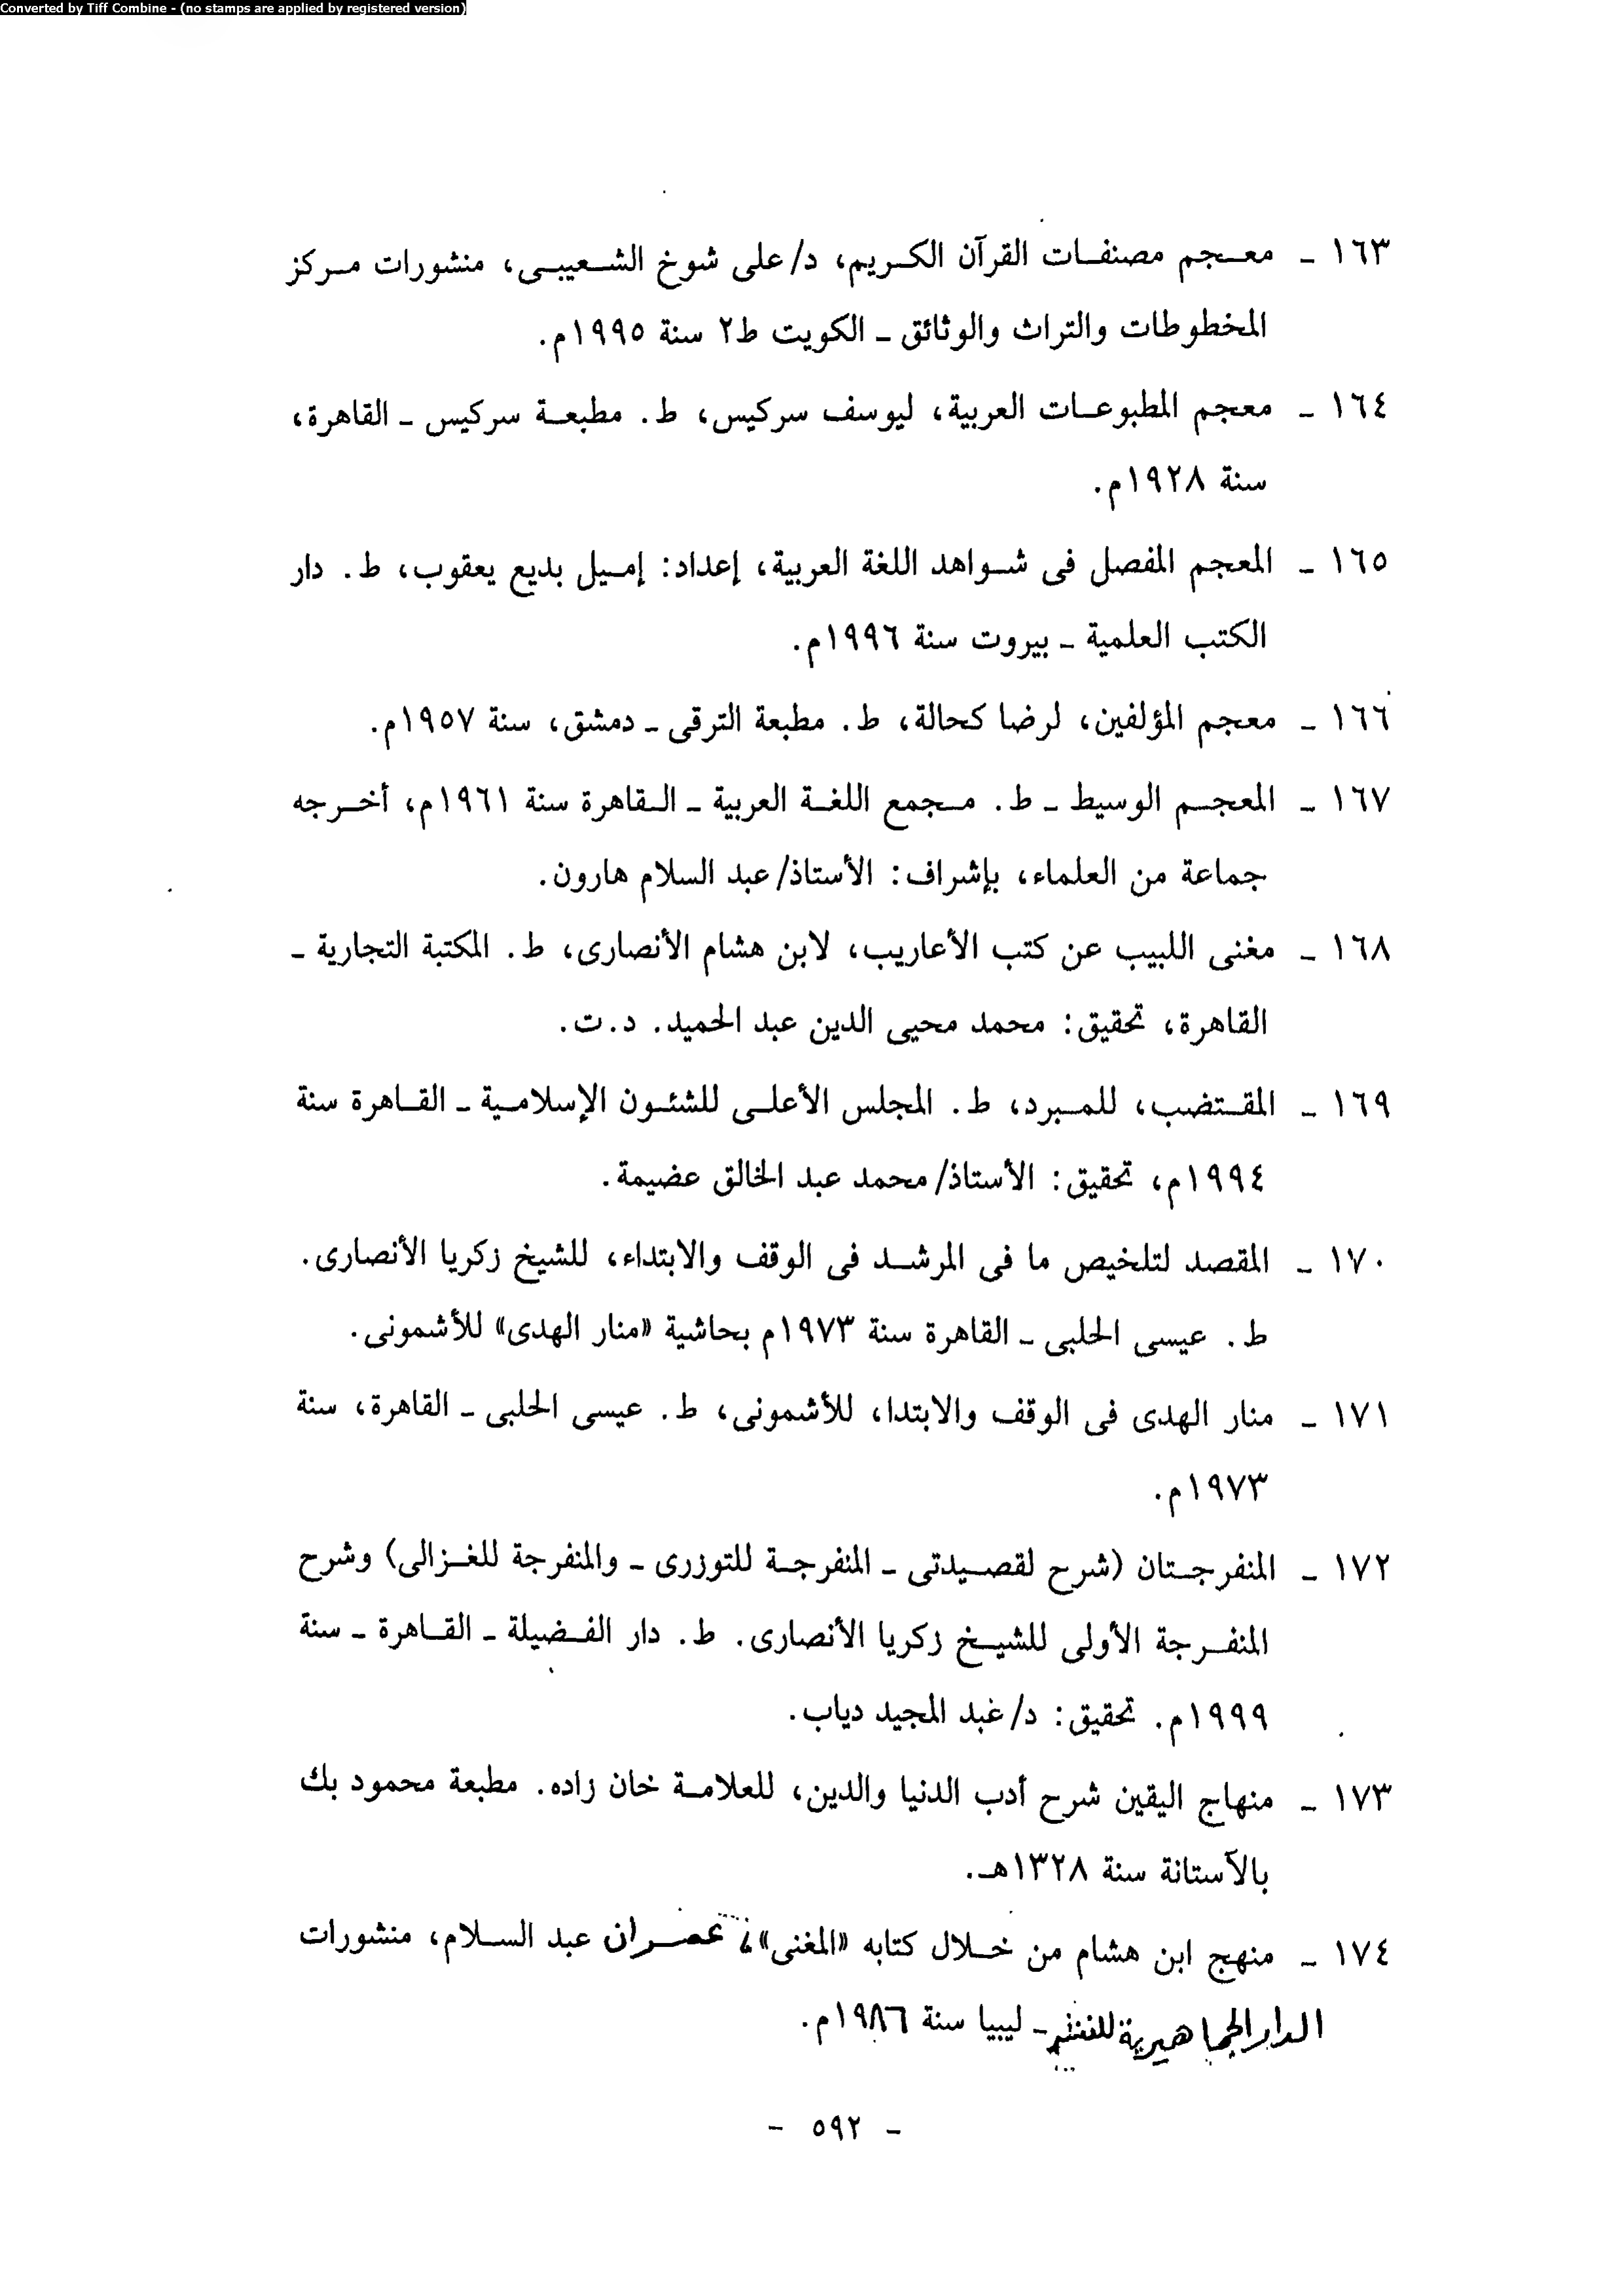 Converted by Tiff Combine - (no stamps are applied by registered version)
١٦٣ ـ معجم مصنفات القرآن الكريم، د/ على شوخ الشعيبى، منشورات مركز
المخطوطات والتراث والوثائق ـ الكويت ط٢ سنة ١٩٩٥م.
١٦٤ ـ معجم المطبوعات العربية، ليوسف سركيس، ط. مطبعة سركيس ـ القاهرة،
سنة ١٩٢٨م.
١٦٥ ـ المعجم المفصل فى شواهد اللغة العربية، إعداد: إميل بديع يعقوب، ط. دار
الكتب العلمية ـ بيروت سنة ١٩٩٦م.
١٦٦ ـ معجم المؤلفين، لرضا كحالة، ط. مطبعة الترقى ـ دمشق، سنة ١٩٥٧م.
١٦٧ ـ المعجم الوسيط ـ ط. مجمع اللغة العربية ـ القاهرة سنة ١٩٦١م، أخرجه
جماعة من العلماء، بإشراف: الأستاذ/ عبد السلام هارون.
١٦٨ ـ مغنى اللبيب عن كتب الأعاريب، لابن هشام الأنصارى، ط. المكتبة التجارية ـ
القاهرة، تحقيق: محمد محيى الدين عبد الحميد. د.ت.
١٦٩ ـ المقتضب، للمبرد، ط. المجلس الأعلى للشئون الإسلامية ـ القاهرة سنة
١٩٩٤م، تحقيق: الأستاذ/ محمد عبد الخالق عضيمة.
١٧٠ ـ المقصد لتلخيص ما فى المرشد فى الوقف والابتداء، للشيخ زكريا الأنصارى.
ط. عيسى الحلبى ـ القاهرة سنة ١٩٧٣م بحاشية «منار الهدى» للأشمونى.
١٧١ ـ منار الهدى فى الوقف والابتدا، للأشمونى، ط. عيسى الحلبى ـ القاهرة، سنة
١٩٧٣م.
١٧٢ ـ المنفرجتان (شرح لقصيدتى ـ المنفرجة للتوزرى ـ والمنفرجة للغزالى) وشرح
المنفرجة الأولى للشيخ زكريا الأنصارى. ط. دار الفضيلة ـ القاهرة ـ سنة
١٩٩٩م. تحقيق: د/ عبد المجيد دياب.
١٧٣ ـ منهاج اليقين شرح أدب الدنيا والدين، للعلامة خان زاده. مطبعة محمود بك
بالآستانة سنة ١٣٢٨هـ.
١٧٤ ـ منهج ابن هشام من خلال كتابه «المغنى»، عمران عبد السلام، منشورات
الدار الجماهيرية للنشر ـ ليبيا سنة ١٩٨٦م.
ـ ٥٩٢ ـ